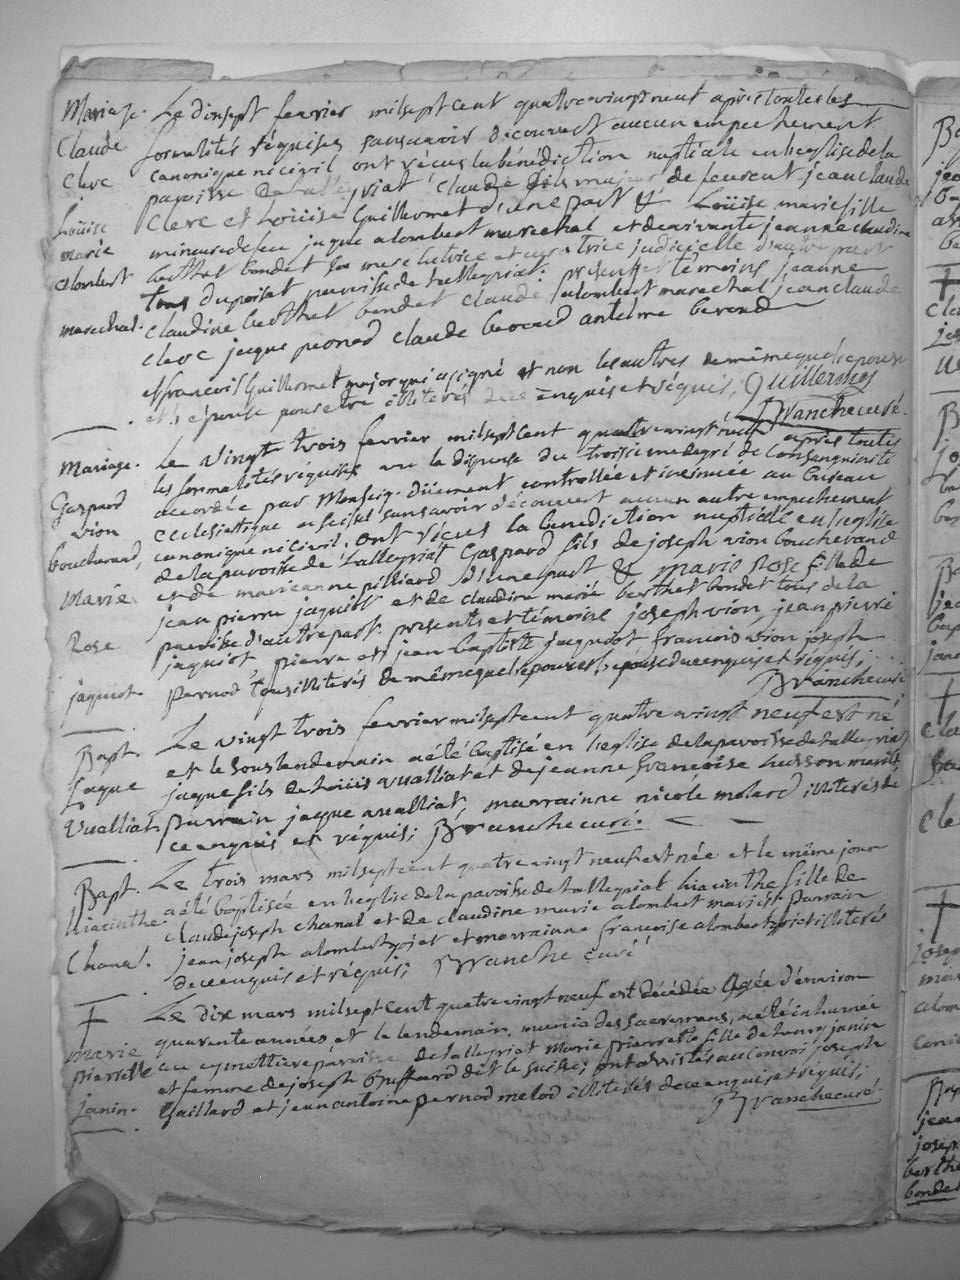 Mariage. Le dixsept fevrier milsept cent quatre vingt neuf après toutes les
Claude formalités réquises sans avoir découvert aucun empechement
Clerc canonique ni civil ont récus la bénédiction nuptiale en leglise de la
paroisse de talle yriat Claude fils majeur de feu rent jean claude
Louise Clerc et Louise Guillermet d'une part & Louise marie fille
marie mineure de feu jaque alombert marechal et de vivante jeanne claudine
alombert berthet bondet sa mere tutrice et curatrice judicielle d'autre part
tous du poisat paroisse de talleyriat. présents et témoins jeanne
marechal. claudine berthet bondet claude alombert marechal jean claude
clerc jaque pernod claude berard antelme berard
et francois Guillermet major qui a signé et non les autres de même que lepoux
et lépouse pour etre illiterés de ce enquis et réquis, Guillermet
Branche curé.
Mariage. Le vingt trois fevrier milsept cent quatre vingt neuf après toutes
les formalités réquises vu la dispense du troisieme degré de consanguinité
Gaspard accordée par Monseig. dûement controllée et insinuée au bureau
vion ecclesiastique sans avoir découvert aucun autre empechement
bouchenard, canonique ni civil, ont récus la bénédiction nuptiale en leglise
de la paroisse de talleyriat Gaspard fils de joseph vion bouchenard
Marie et de marieanne pilliard d'une part & marie Rose fille de
jean pierre jaquiot et de claudine marie berthet bondet tous de la
Rose paroisse d'autre part. presents et témoins joseph vion, jean pierre
jaquiot, pierre et jean baptiste jaquiot francois vion joseph
jaquiot pernod tous illiterés de même que lepoux et lépouse de ce enquis et réquis;
Branche curé
Bapt. Le vingt trois fevrier milsept cent quatre vingt neuf est né
et le surlendemain a été baptisé en leglise de la paroisse de talleyriat
jaque jaque fils de louis vualliat et de jeanne francoise husson mariés
Vualliat parrain jaque vualliat, marrainne nicole molard illiterés de
ce enquis et réquis; Branche curé.
Bapt. Le trois mars milsept cent quatre vingt neuf est née et le même jour
hiacinthe a été baptisée en leglise de la paroisse de talleyriat hiacinthe fille de
claude joseph chanal et de claudine marie alombert mariés parrain
Chanal. jean joseph alombert gojet et marrainne francoise alombert gojet illiterés
de ce enquis et réquis; Branche curé
† Le dix mars milsept cent quatre vingt neuf est décédée agée d'environ
quarente années et le lendemain, munie des sacremens, a été inhumée
marie au cymettiere paroissial de talleyriat Marie pierrette fille de janin
pierrette et femme de joseph Goyffard dit le suisse; ont assistés au convoi joseph
janin. Gaillard et jean antoine pernod melod illiterés de ce enquis et réquis;
Branche curé